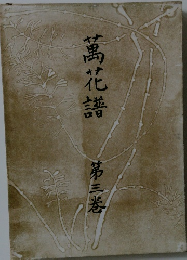 萬花譜
第三巻